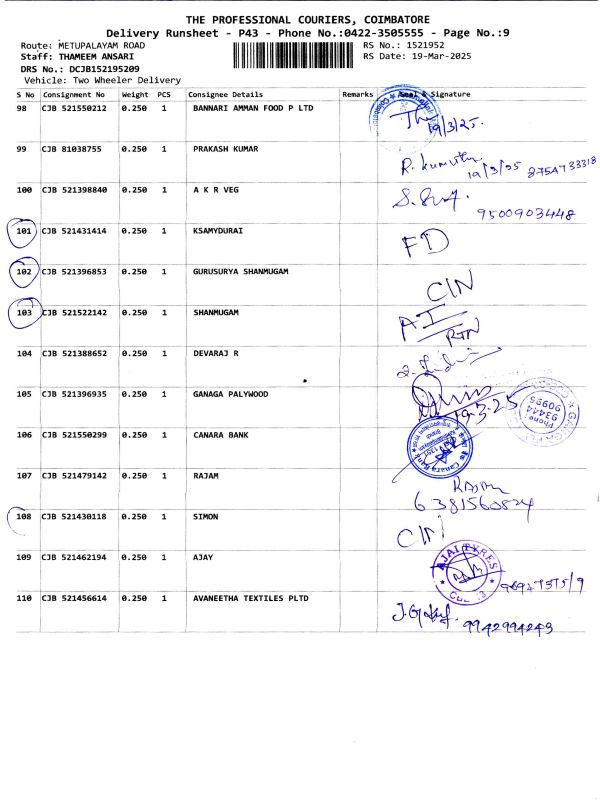 THE PROFESSIONAL COURIERS, COIMBATORE
Delivery Runsheet - P43 - Phone No.:0422-3505555 - Page No.:9
Route: METUPALAYAM ROAD RS No.: 1521952
Staff: THAMEEM ANSARI RS Date: 19-Mar-2025
DRS No.: DCJB152195209
Vehicle: Two Wheeler Delivery
S No Consignment No Weight PCS Consignee Details Remarks Seal & Signature
98 CJB 521550212 0.250 1 BANNARI AMMAN FOOD P LTD
19/3/25.
99 CJB 81038755 0.250 1 PRAKASH KUMAR
19/3/25
100 CJB 521398840 0.250 1 A K R VEG
9500903448
101 CJB 521431414 0.250 1 KSAMYDURAI FD
102 CJB 521396853 0.250 1 GURUSURYA SHANMUGAM CIN
103 CJB 521522142 0.250 1 SHANMUGAM AI
RTN
104 CJB 521388652 0.250 1 DEVARAJ R
105 CJB 521396935 0.250 1 GANAGA PALYWOOD
19.3.25
Phone:
93444
90995
106 CJB 521550299 0.250 1 CANARA BANK
Canara Bank
107 CJB 521479142 0.250 1 RAJAM
108 CJB 521430118 0.250 1 SIMON CIN
109 CJB 521462194 0.250 1 AJAY AJAI TYRES
110 CJB 521456614 0.250 1 AVANEETHA TEXTILES PLTD
9942994243